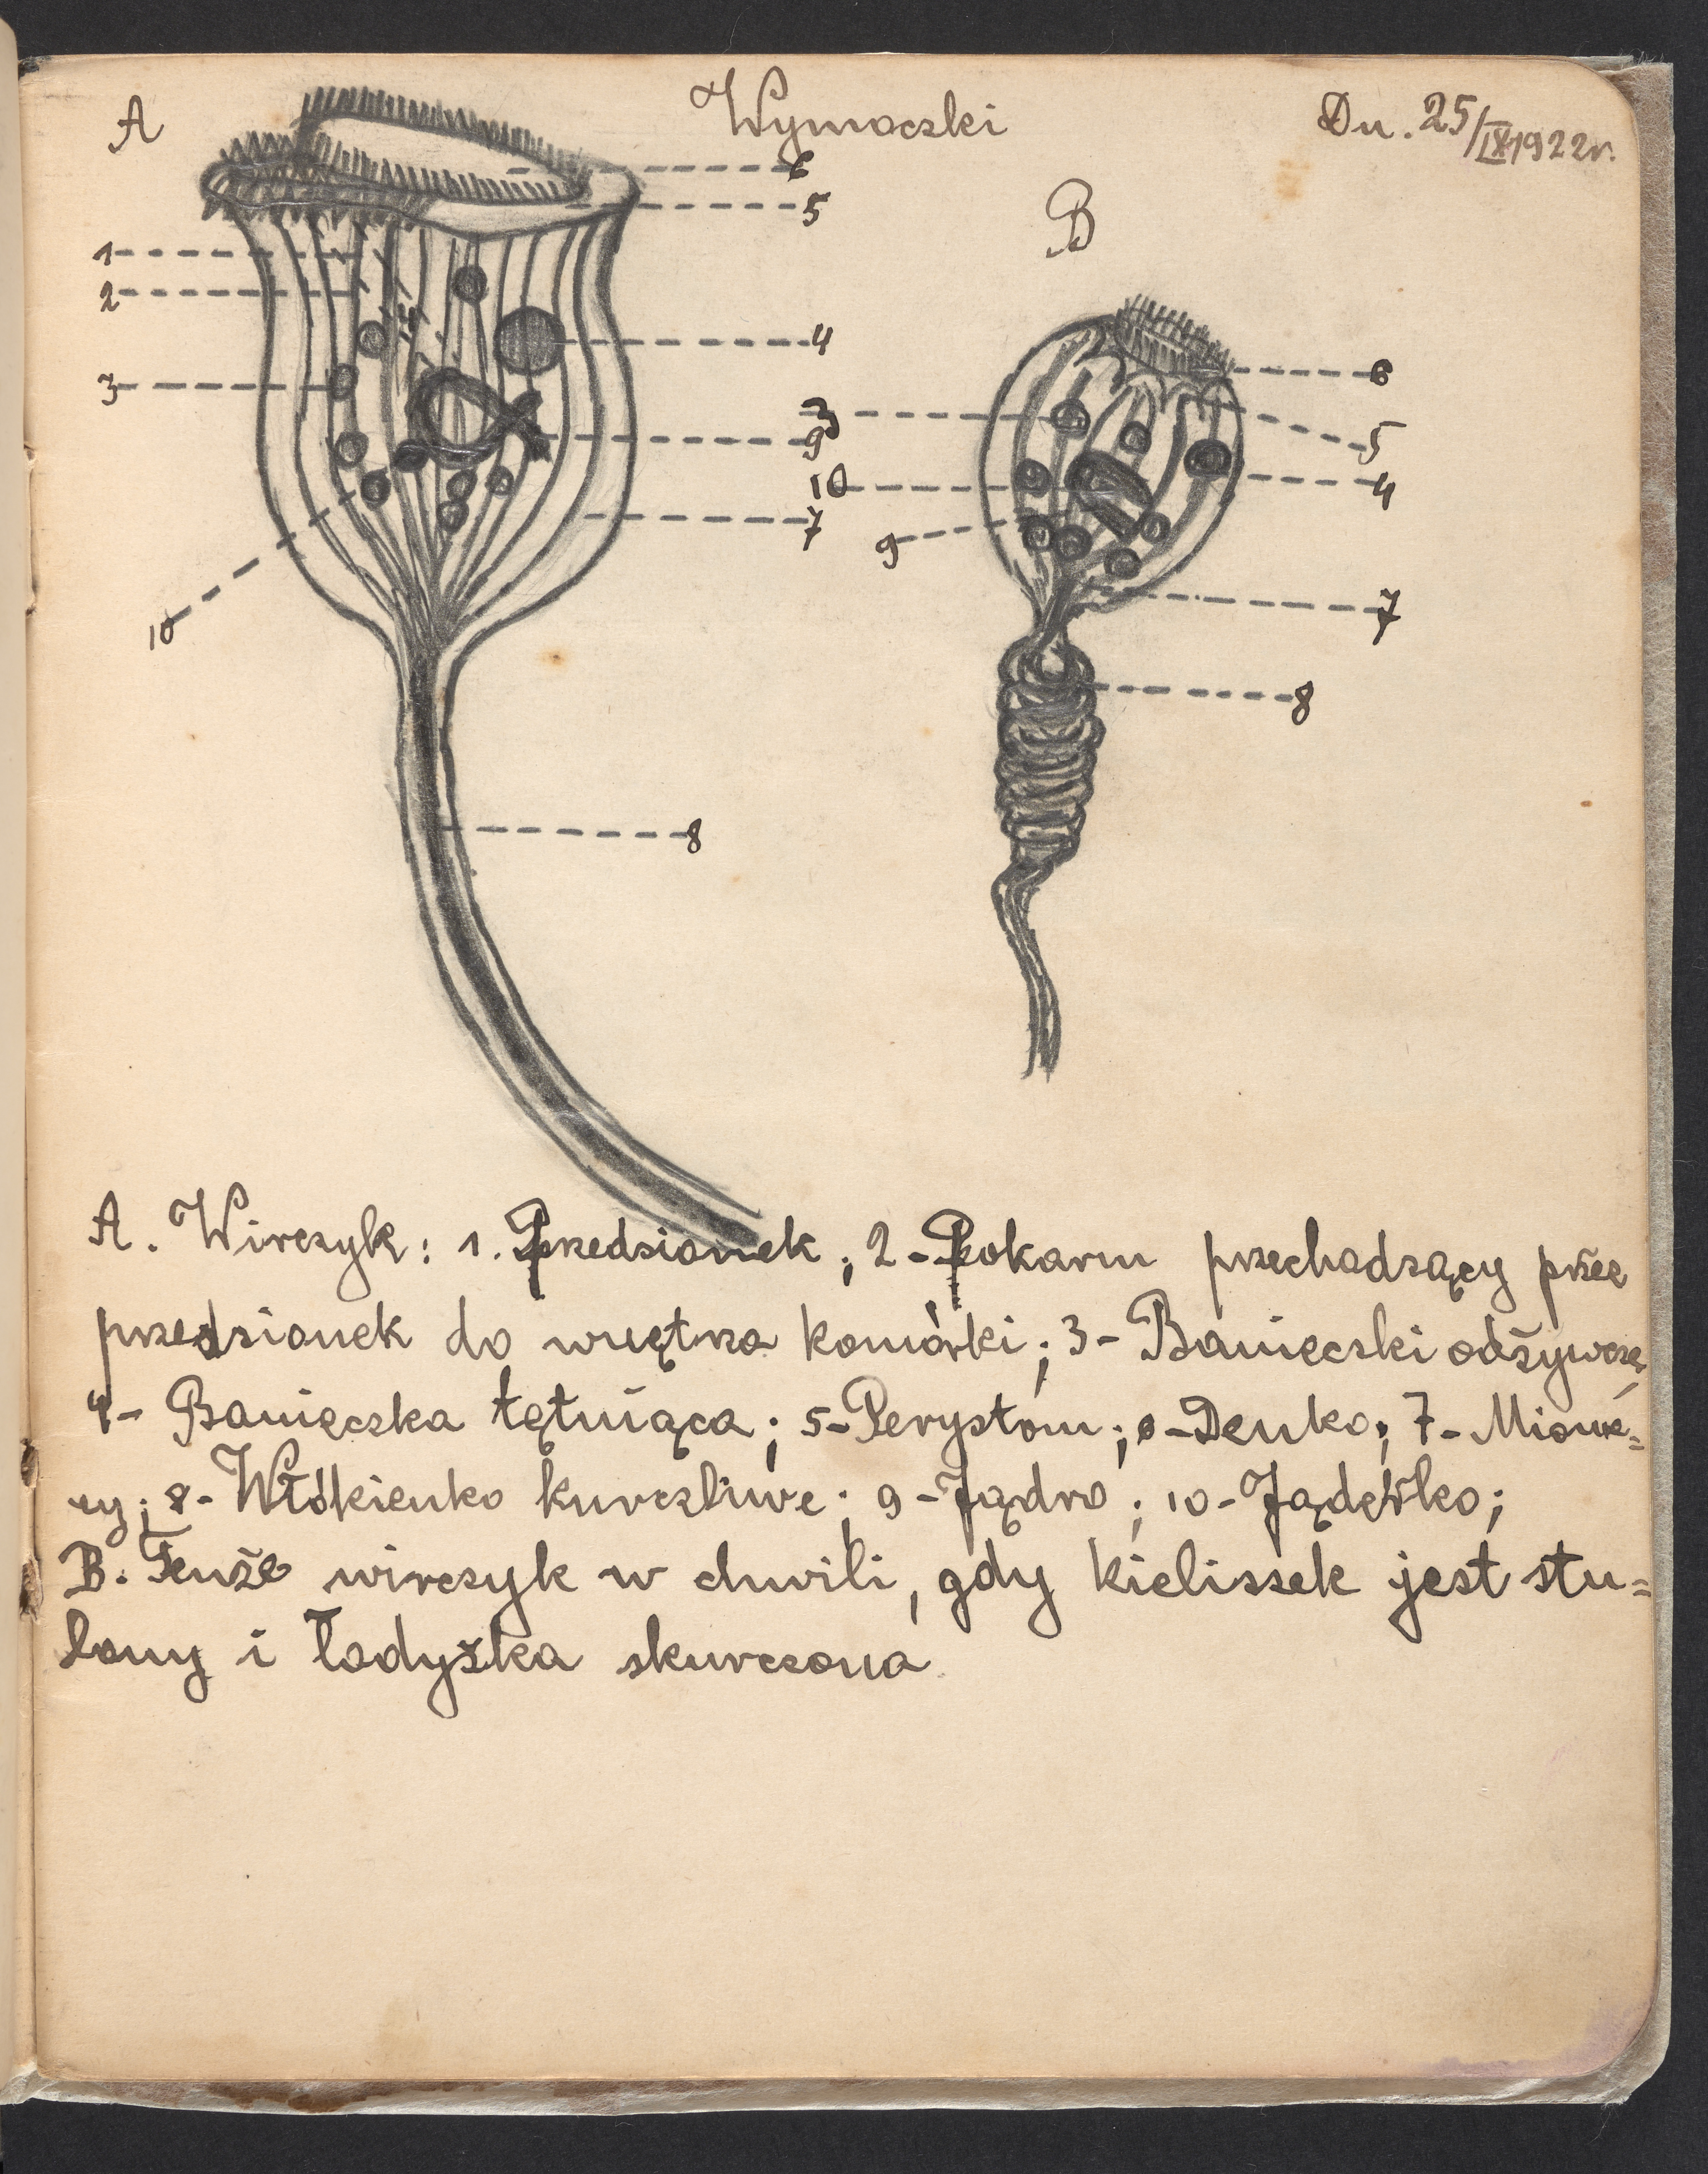 A
Wymoczki
Dn. 25/IX 1922r.
6
5
B
1
2
4
6
3
3
9
5
10
4
7
9
10
7
8
8
A. Wirczyk: 1. Przedsionek; 2-Pokarm przechodzący przez
przedsionek do wnętrza komórki; 3- Banieczki odżywcze,
4- Banieczka tętniąca; 5-Perystom; 6-Denko; 7- Mione=
my; 8- Włókienko kurczliwe; 9-Jądro; 10-Jąderko;
B. Tenże wirczyk w chwili, gdy kieliszek jest stu=
lony i łodyżka skurczona